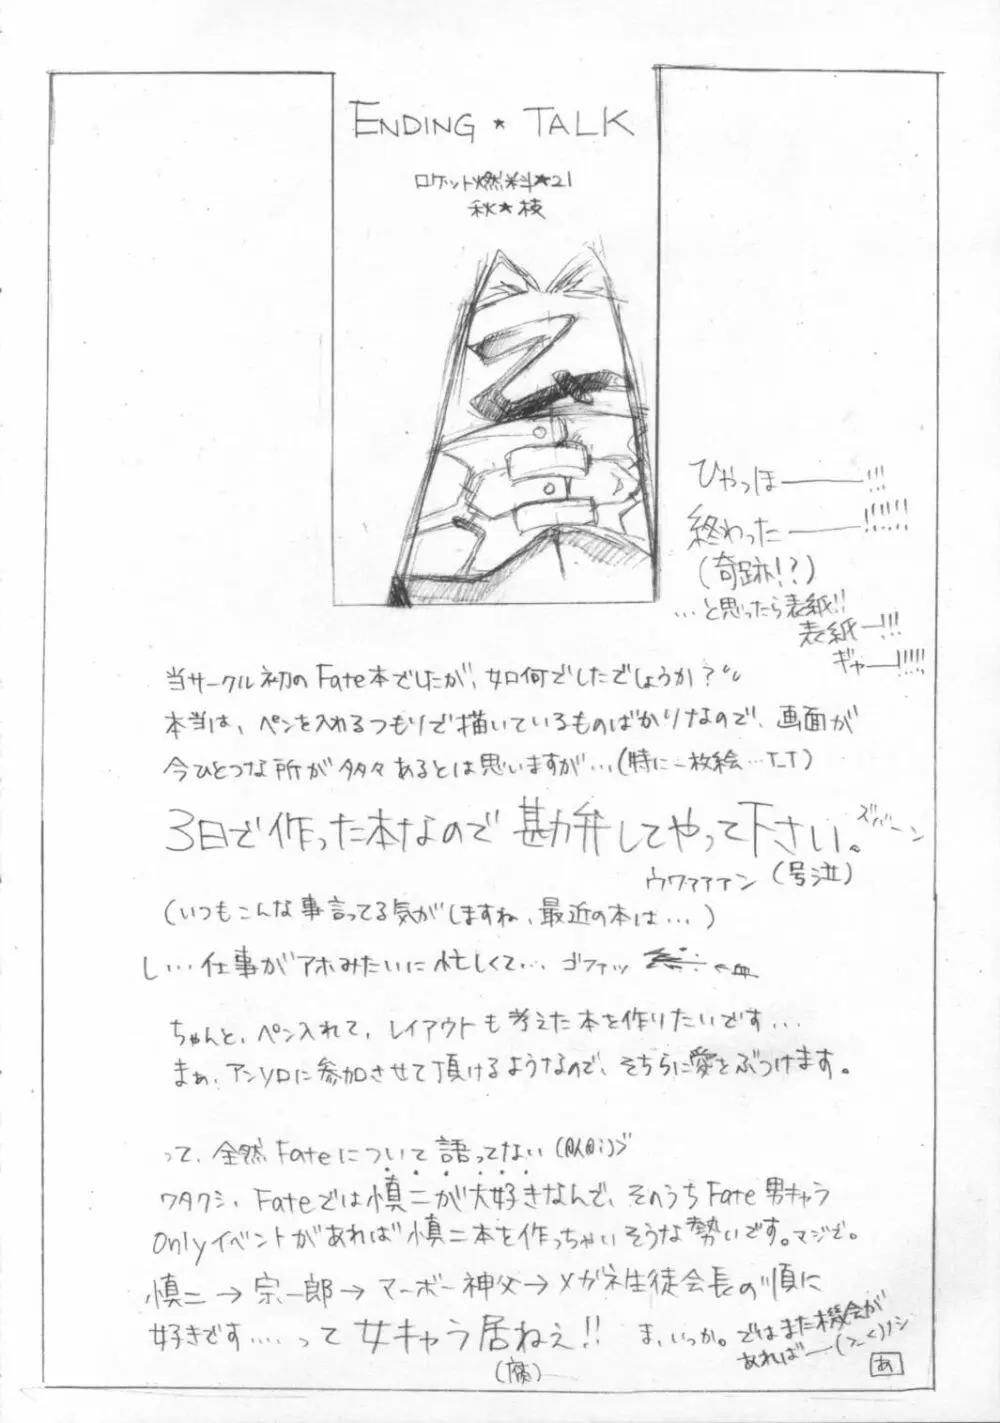 ENDING ★ TALK
ロケット燃料★21
秋★枝
乙
ひやっほー!!!
終わったー!!!!!
(奇跡!?)
…と思ったら表紙!!
表紙ー!!!
ギャー!!!!!
当サークル初のFate本でしたが、如何でしたでしょうか?
本当は、ペンを入れるつもりで描いているものばかりなので、画面が
今ひとつな所が多々あるとは思いますが…(特に一枚絵…T_T)
3日で作った本なので勘弁してやって下さい。ズバーン
ウワァァァン (号泣)
(いつもこんな事言ってる気がしますね、最近の本は…)
し…仕事がアホみたいに忙しくて… ゴファッ ←血
ちゃんと、ペン入れて、レイアウトも考えた本を作りたいです…
まぁ、アンソロに参加させて頂けるようなので、そちらに愛をぶつけます。
って、全然Fateについて語ってない
ワタクシ、Fateでは慎二が大好きなんで、そのうちFate男キャラ
Onlyイベントがあれば慎二本を作っちゃいそうな勢いです。マジで。
慎二→宗一郎→マーボー神父→メガネ生徒会長の順に
好きです….って女キャラ居ねぇ!! ま、いっか。ではまた機会が
あればー(>_<)ノシ
(腐)
あ